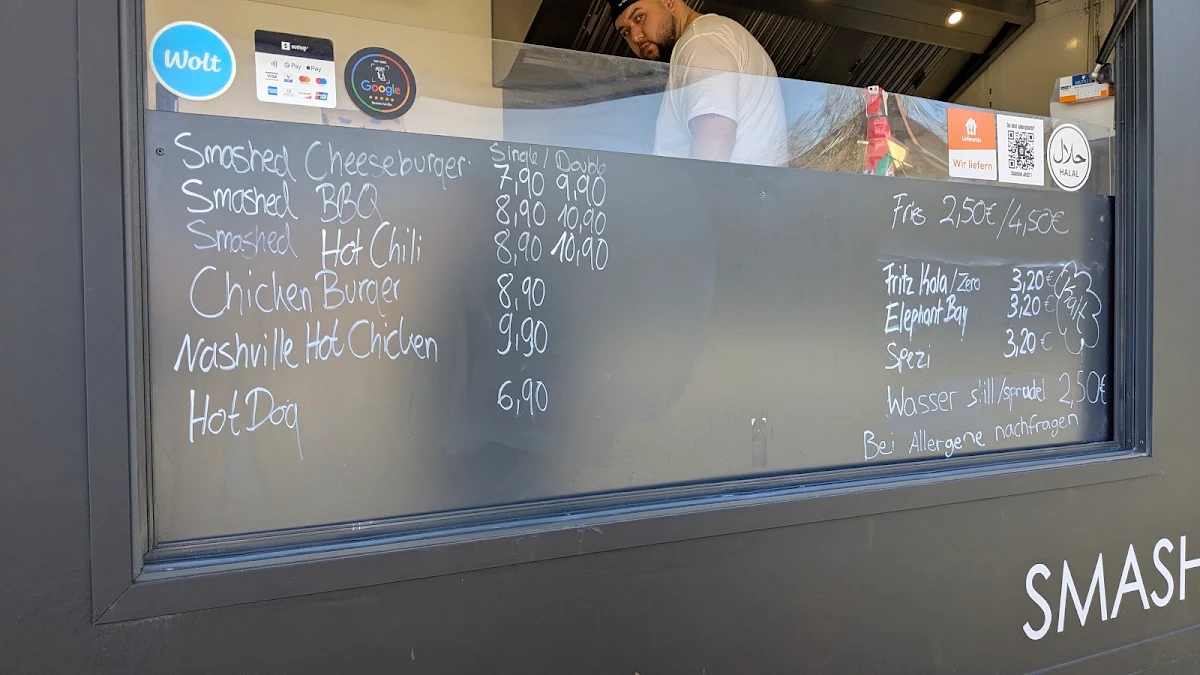 Wolt
sumup
G Pay Apple Pay
VISA
Google
Lieferando
Wir liefern
حلال
HALAL
Single / Double
Smashed Cheeseburger 7,90 9,90
Smashed BBQ 8,90 10,90
Smashed Hot Chili 8,90 10,90
Chicken Burger 8,90
Nashville Hot Chicken 9,90
Hot Dog 6,90
Fries 2,50€/4,50€
Fritz Kola/Zero 3,20€
Elephant Bay 3,20€
Spezi 3,20€
Wasser still/sprudel 2,50€
Bei Allergene nachfragen
SMASH